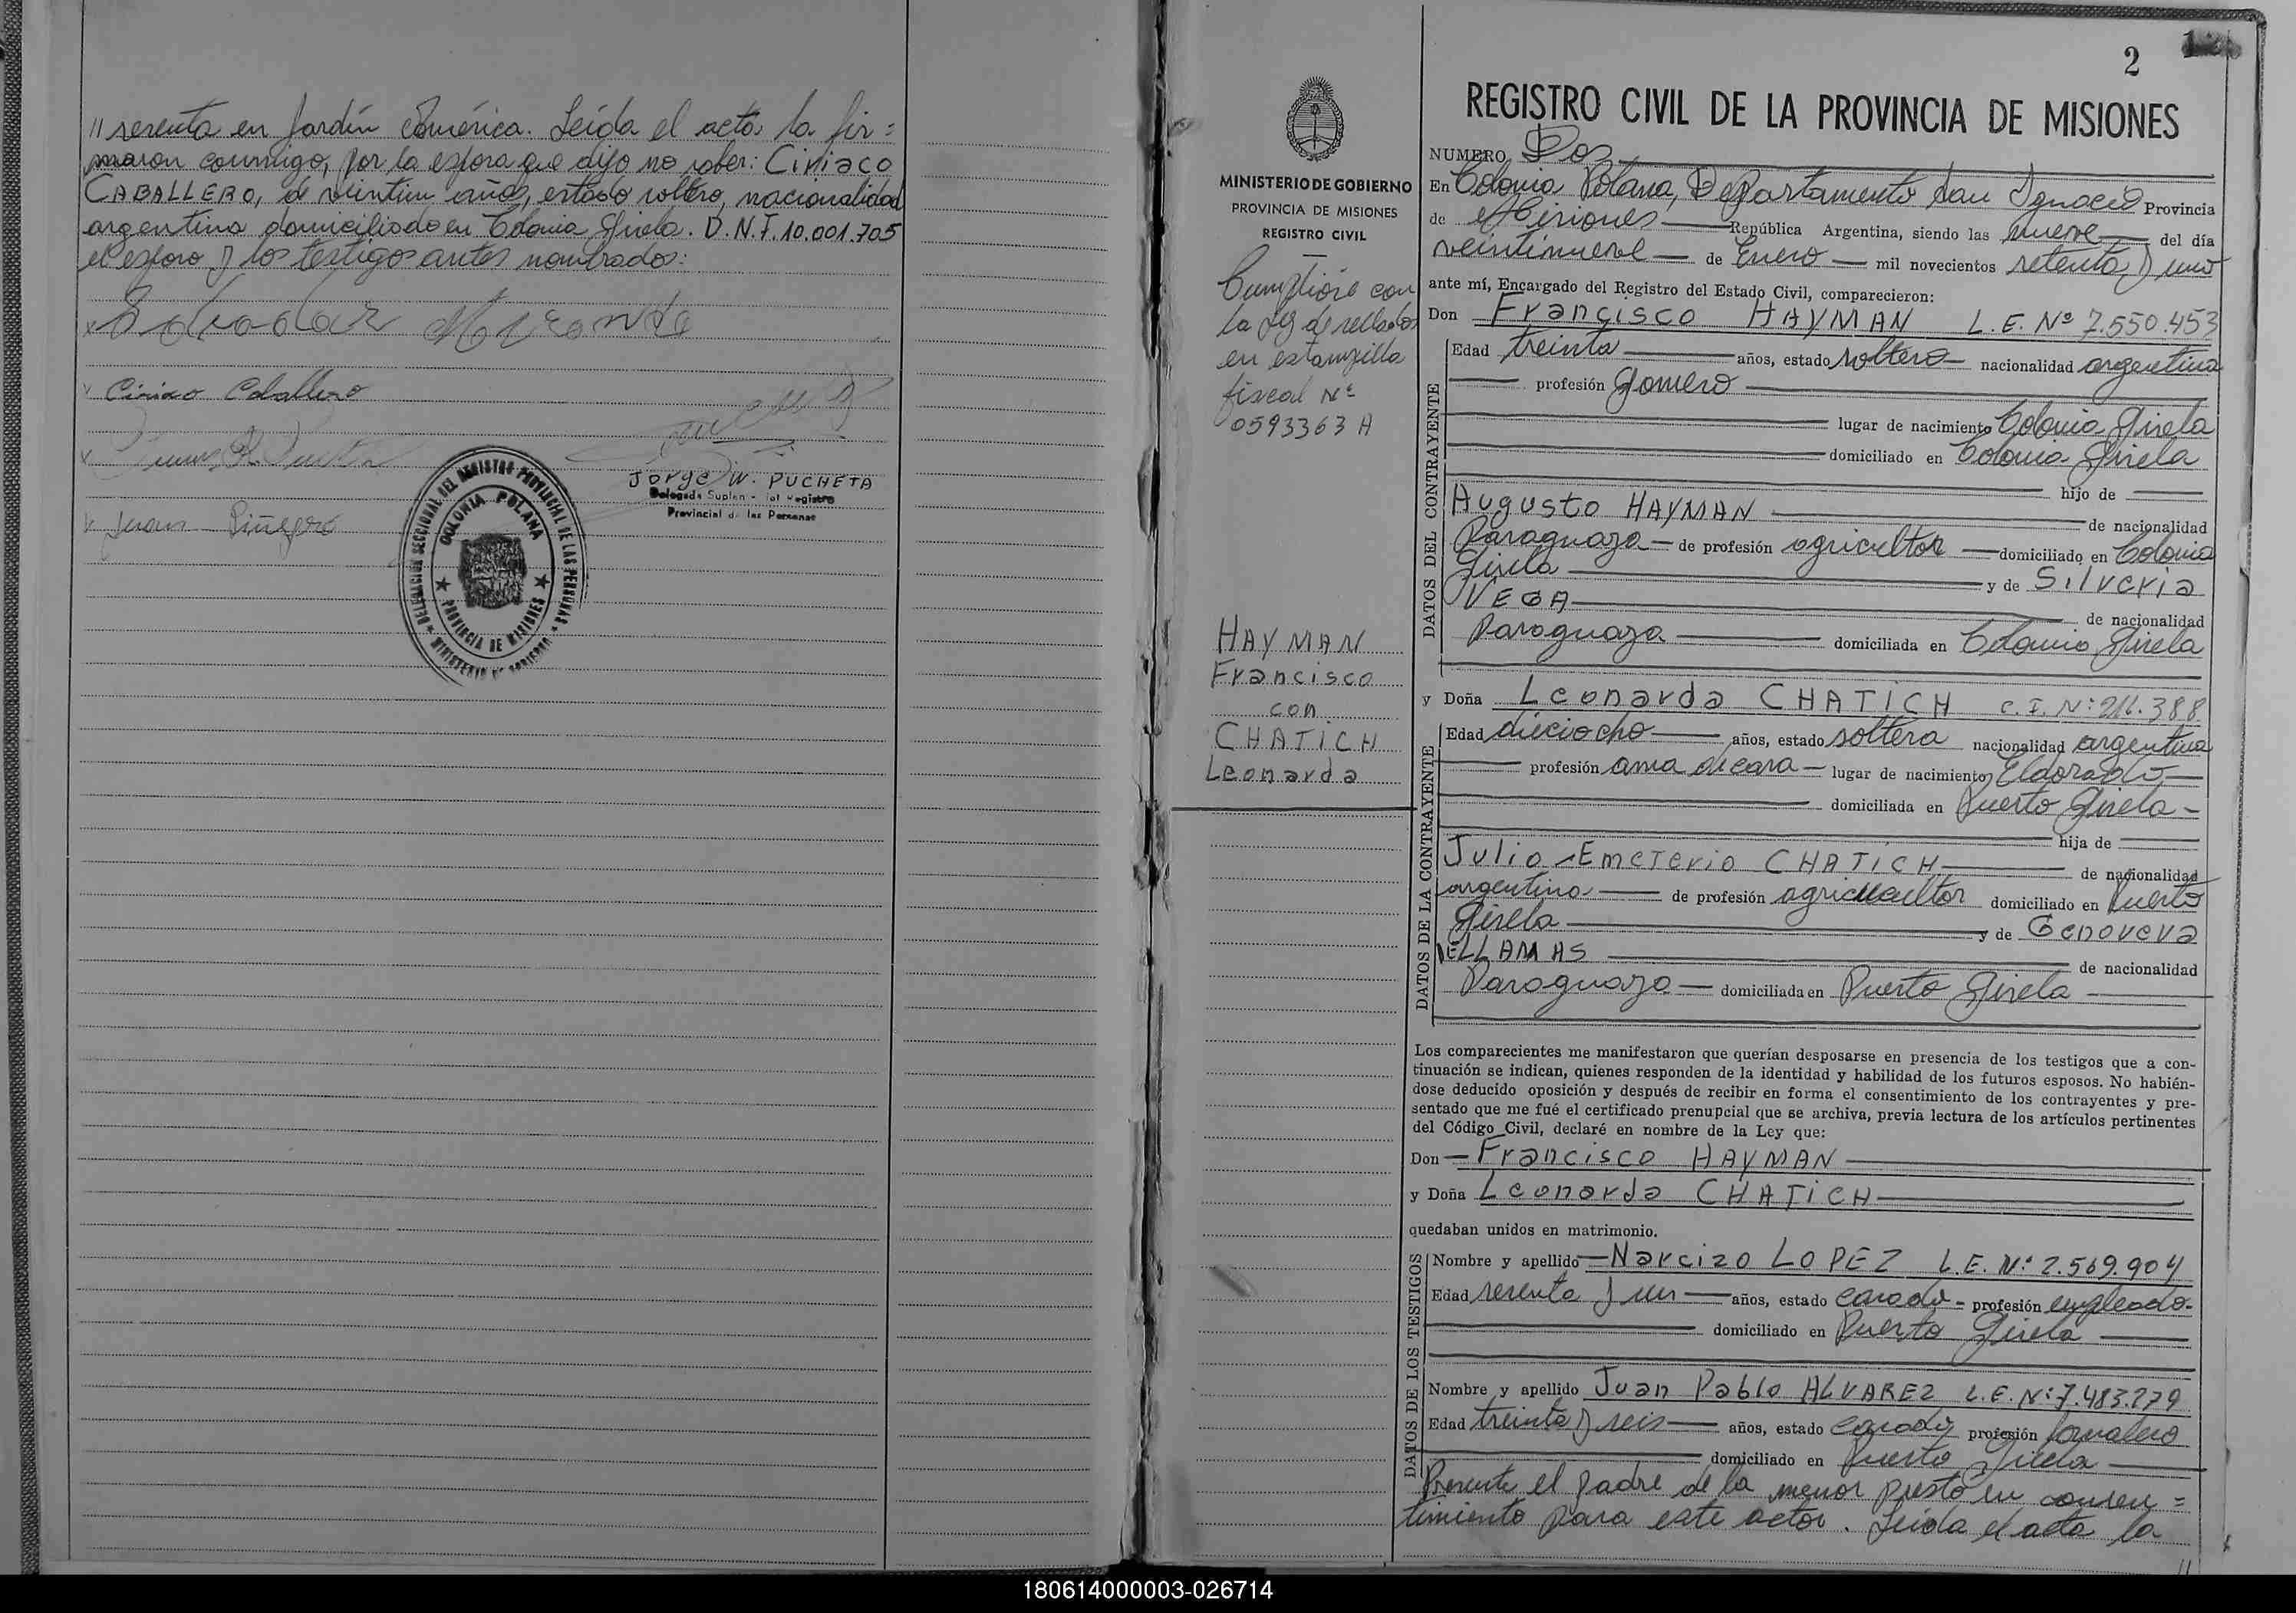 // sesenta en Jardín América. Leída el acta, la fir=
maron conmigo, por la esposa que dijo no saber: Ciriaco
CABALLERO, de veintiun años, estado soltero, nacionalidad
argentina domiciliado en Colonia Gisela. D.N.I. 10.001.705
el esposo y los testigos antes nombrados:
Ciriaco Caballero
JORGE W. PUCHETA
Delegado Suplen - del Registro
Provincial de las Personas
Juan Piñeyro
DELEGACION SECCIONAL DEL REGISTRO PROVINCIAL DE LAS PERSONAS
COLONIA POLANA
PROVINCIA DE MISIONES
MINISTERIO DE GOBIERNO
2
REGISTRO CIVIL DE LA PROVINCIA DE MISIONES
MINISTERIO DE GOBIERNO
PROVINCIA DE MISIONES
REGISTRO CIVIL
Cumplióse con
la ley de sellados
en estampilla
fiscal Nº
0593363 A
HAYMAN
Francisco
con
CHATICH
Leonarda
NUMERO Dos
En Colonia Polana, Departamento San Ignacio Provincia
de Misiones República Argentina, siendo las nueve del día
veintinueve de Enero mil novecientos setenta y uno
ante mí, Encargado del Registro del Estado Civil, comparecieron:
Don Francisco HAYMAN L.E. Nº 7.550.453
DATOS DEL CONTRAYENTE
Edad treinta años, estado soltero nacionalidad argentina
profesión gomero
lugar de nacimiento Colonia Gisela
domiciliado en Colonia Gisela
hijo de
Augusto HAYMAN de nacionalidad
Paraguaya de profesión agricultor domiciliado en Colonia
Gisela y de Silveria
VEGA de nacionalidad
Paraguaya domiciliada en Colonia Gisela
y Doña Leonarda CHATICH C.I. Nº: 211.388
DATOS DE LA CONTRAYENTE
Edad dieciocho años, estado soltera nacionalidad argentina
profesión ama de casa lugar de nacimiento Eldorado
domiciliada en Puerto Gisela
hija de
Julio Emeterio CHATICH de nacionalidad
argentino de profesión agricultor domiciliado en Puerto
Gisela y de Genoveva
DELLAMAS de nacionalidad
Paraguaya domiciliada en Puerto Gisela
Los comparecientes me manifestaron que querían desposarse en presencia de los testigos que a con-
tinuación se indican, quienes responden de la identidad y habilidad de los futuros esposos. No habién-
dose deducido oposición y después de recibir en forma el consentimiento de los contrayentes y pre-
sentado que me fué el certificado prenupcial que se archiva, previa lectura de los artículos pertinentes
del Código Civil, declaré en nombre de la Ley que:
Don Francisco HAYMAN
y Doña Leonarda CHATICH
quedaban unidos en matrimonio.
DATOS DE LOS TESTIGOS
Nombre y apellido Narcizo LOPEZ L.E. Nº: 2.569.904
Edad sesenta y un años, estado casado profesión empleado.
domiciliado en Puerto Gisela
Nombre y apellido Juan Pablo ALVAREZ L.E. Nº: 7.483.279
Edad treinta y seis años, estado casado profesión jornalero
domiciliado en Puerto Gisela
Presente el padre de la menor prestó su consen=
timiento para este acto. Leída el acta la
//
180614000003-026714